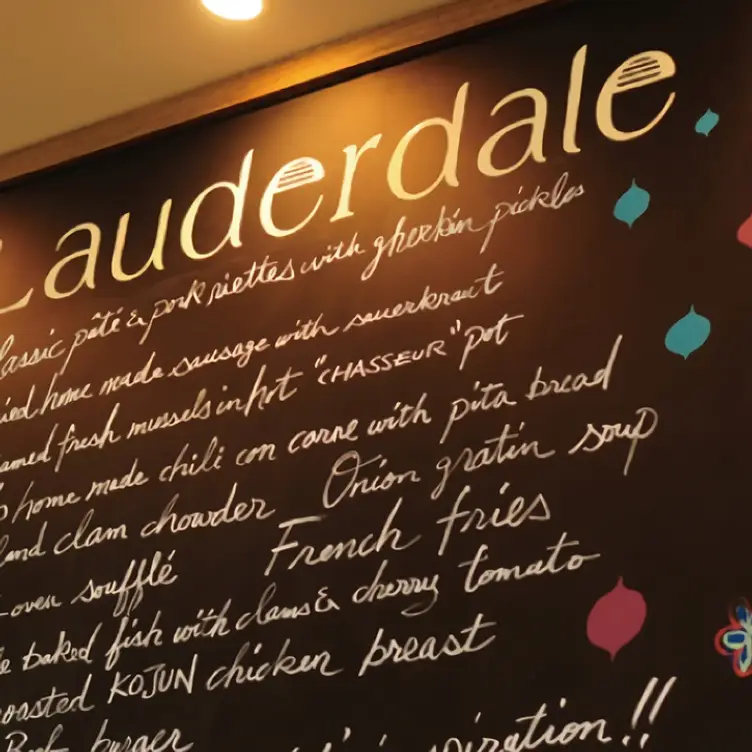 Lauderdale
lassic pâté & pork riettes with gherkin pickles
ied home made sausage with sauerkraut
amed fresh mussels in hot "CHASSEUR" pot
home made chili con carne with pita bread
land clam chowder Onion gratin soup
oven soufflé French fries
e baked fish with clams & cherry tomato
oasted KOJUN chicken breast
burger
iration!!